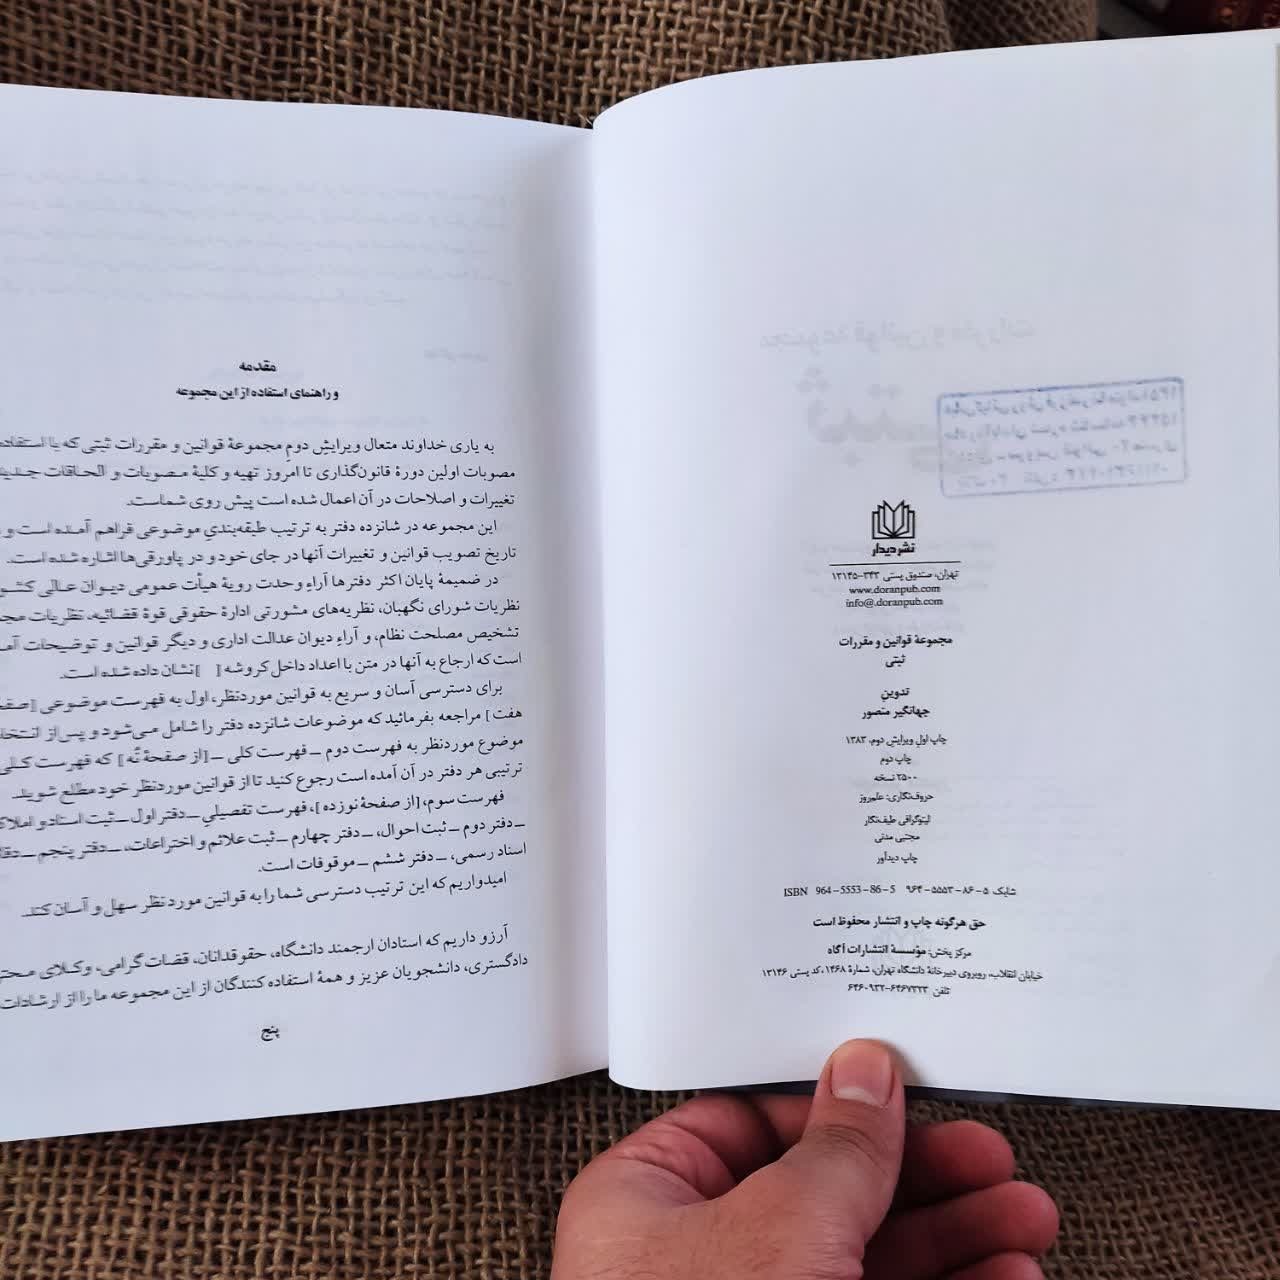 نشر دیدار
تهران، صندوق پستی ۳۴۳-۱۳۱۴۵
www.doranpub.com
info@.doranpub.com
مجموعهٔ قوانین و مقررات
ثبتی
تدوین
جهانگیر منصور
چاپ اول ویرایش دوم، ۱۳۸۳
چاپ دوم
۲۵۰۰ نسخه
حروف‌نگاری: علم‌روز
لیتوگرافی طیف‌نگار
مجتبی مدنی
چاپ دیدآور
شابک ۵-۸۶-۵۵۵۳-۹۶۴ ISBN 964-5553-86-5
حق هرگونه چاپ و انتشار محفوظ است
مرکز پخش: مؤسسهٔ انتشارات آگاه
خیابان انقلاب، روبروی دبیرخانهٔ دانشگاه تهران، شمارهٔ ۱۴۶۸، کد پستی ۱۳۱۴۶
تلفن ۶۴۶۷۳۲۳-۶۴۶۰۹۳۲
مقدمه
و راهنمای استفاده از این مجموعه
به یاری خداوند متعال ویرایشِ دومِ مجموعهٔ قوانین و مقررات ثبتی که با استفاده
مصوبات اولین دورهٔ قانون‌گذاری تا امروز تهیه و کلیهٔ مصوبات و الحاقات جدید
تغییرات و اصلاحات در آن اعمال شده است پیش روی شماست.
این مجموعه در شانزده دفتر به ترتیب طبقه‌بندیِ موضوعی فراهم آمده است و
تاریخ تصویب قوانین و تغییرات آنها در جای خود و در پاورقی‌ها اشاره شده است.
در ضمیمهٔ پایان اکثر دفترها آراءِ وحدت رویهٔ هیأت عمومی دیوان عالی کشو
نظریات شورای نگهبان، نظریه‌های مشورتی ادارهٔ حقوقی قوهٔ قضائیه، نظریات مجم
تشخیص مصلحت نظام، و آراءِ دیوان عدالت اداری و دیگر قوانین و توضیحات آم
است که ارجاع به آنها در متن با اعداد داخل کروشه [ ] نشان داده شده است.
برای دسترسی آسان و سریع به قوانین موردنظر، اول به فهرست موضوعی [صفح
هفت] مراجعه بفرمائید که موضوعات شانزده دفتر را شامل می‌شود و پس از انتخا
موضوع موردنظر به فهرست دوم ــ فهرست کلی ــ [از صفحهٔ نُه] که فهرست کلی
ترتیبی هر دفتر در آن آمده است رجوع کنید تا از قوانین موردنظر خود مطلع شوید.
فهرست سوم، [از صفحهٔ نوزده]، فهرست تفصیلیِ ــ دفتر اول ــ ثبت اسناد و املاک
ــ دفتر دوم ــ ثبت احوال، ــ دفتر چهارم ــ ثبت علائم و اختراعات، ــ دفتر پنجم ــ دفا
اسناد رسمی، ــ دفتر ششم ــ موقوفات است.
امیدواریم که این ترتیب دسترسی شما را به قوانین موردنظر سهل و آسان کند.
آرزو داریم که استادان ارجمند دانشگاه، حقوقدانان، قضات گرامی، وکلای محتر
دادگستری، دانشجویان عزیز و همهٔ استفاده کنندگان از این مجموعه ما را از ارشادات
پنج